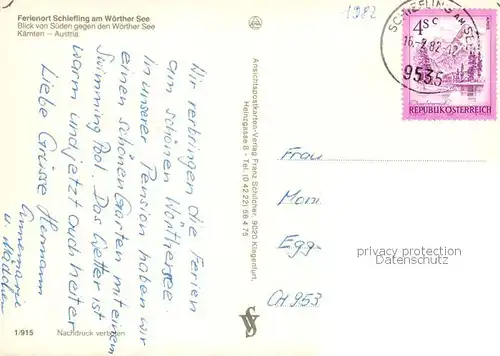 Ferienort Schiefling am Wörther See
Blick von Süden gegen den Wörther See
Kärnten – Austria
1982
SCHIEFLING AM SEE
16.-7.82-12
9535
4 S
REPUBLIK ÖSTERREICH
Wir verbringen die Ferien
am schönen Wörthersee.
In unserer Pension haben wir
einen schönen Garten mit einem
Swimming Pool. Das Wetter ist
warm und jetzt auch heiter
Liebe Grüsse Hermann
Annemarie
u. Mädchen
Ansichtspostkarten-Verlag Franz Schilcher, 9020 Klagenfurt,
Heinzgasse 8 - Tel. (0 42 22) 56 4 75
Frau
Egg
privacy protection
watermark
CH 953
1/915
Nachdruck verboten